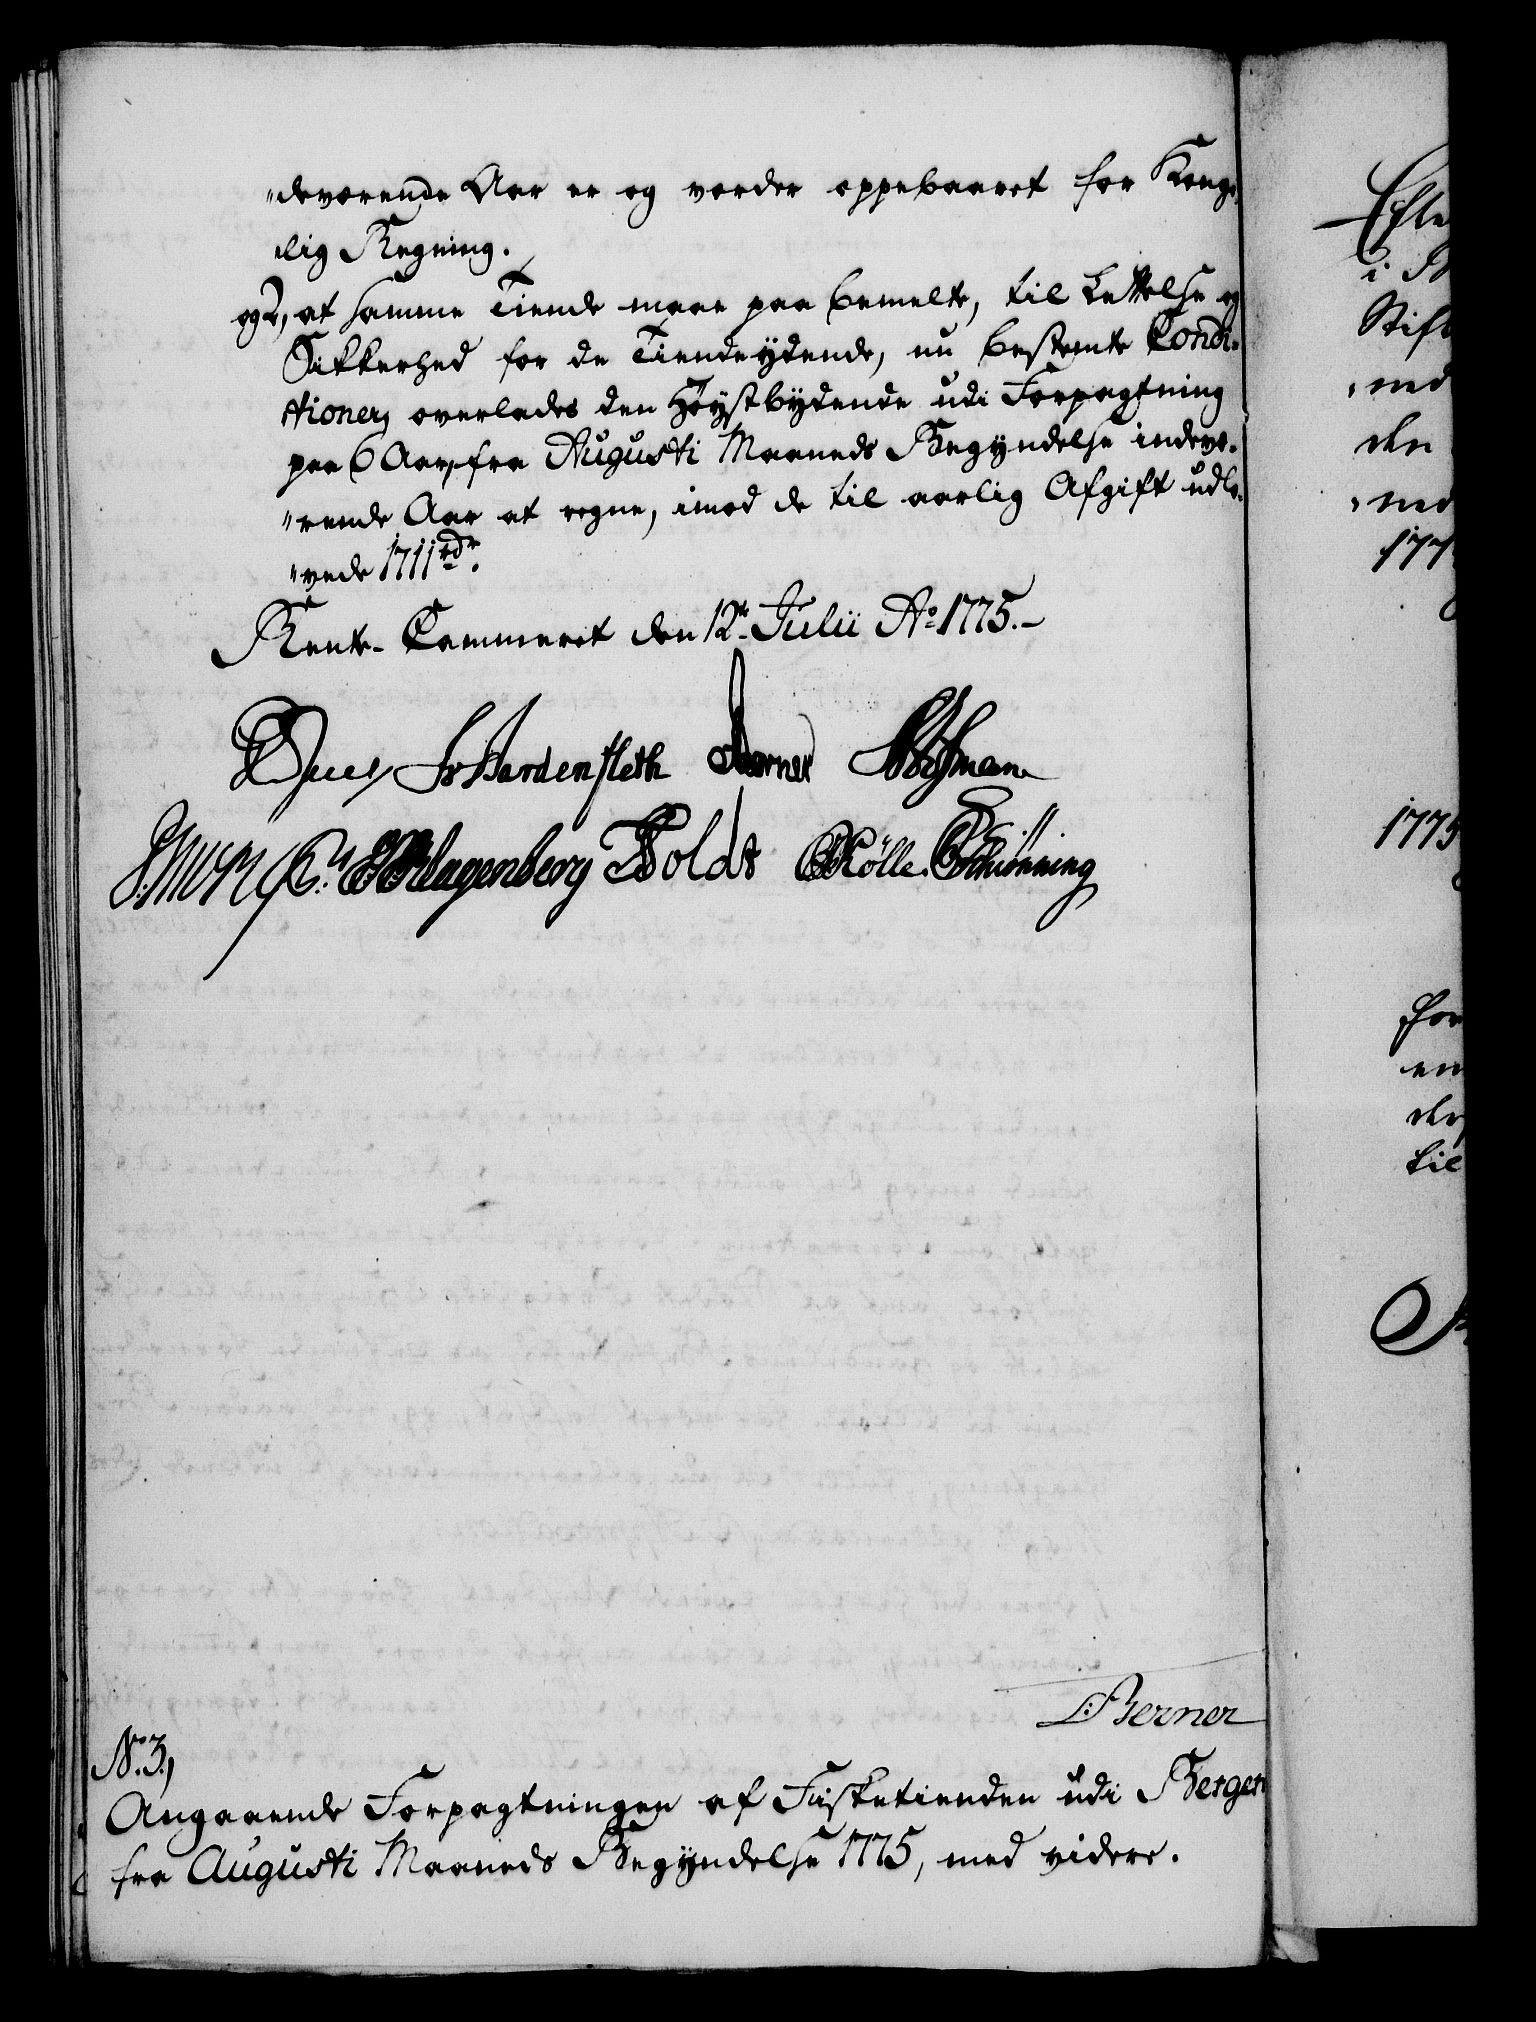 "deværende Aar er og vorder oppebaaret for Konge,
"lig Regning.
og 2, at samme Tiende maae paa bemelte, til Lettelse og
Sikkerhed for de Tiendeÿdende, nu bestemte Condi-
tioner, overlades den Høÿstbÿdende udi Forpagtning
paa 6 Aar, fra Augusti Maaneds Begÿndelse indevæ-
"rende Aar at regne, imod de til aarlig Afgift udlo-
"vede 1711 rdr.
Rente-Cammeret den 12te Julii Ao. 1775.
Hardenfleth Berner
Klagenberg Holdt Rølle. Schiønning
/:Berner
No. 3,
Angaaende Forpagtningen af Fisketienden udi Bergen
fra Augusti Maaneds Begÿndelse 1775, med videre.
Efte
i
Stift
"ned
den
"ned
177
1775
for
en
der
til